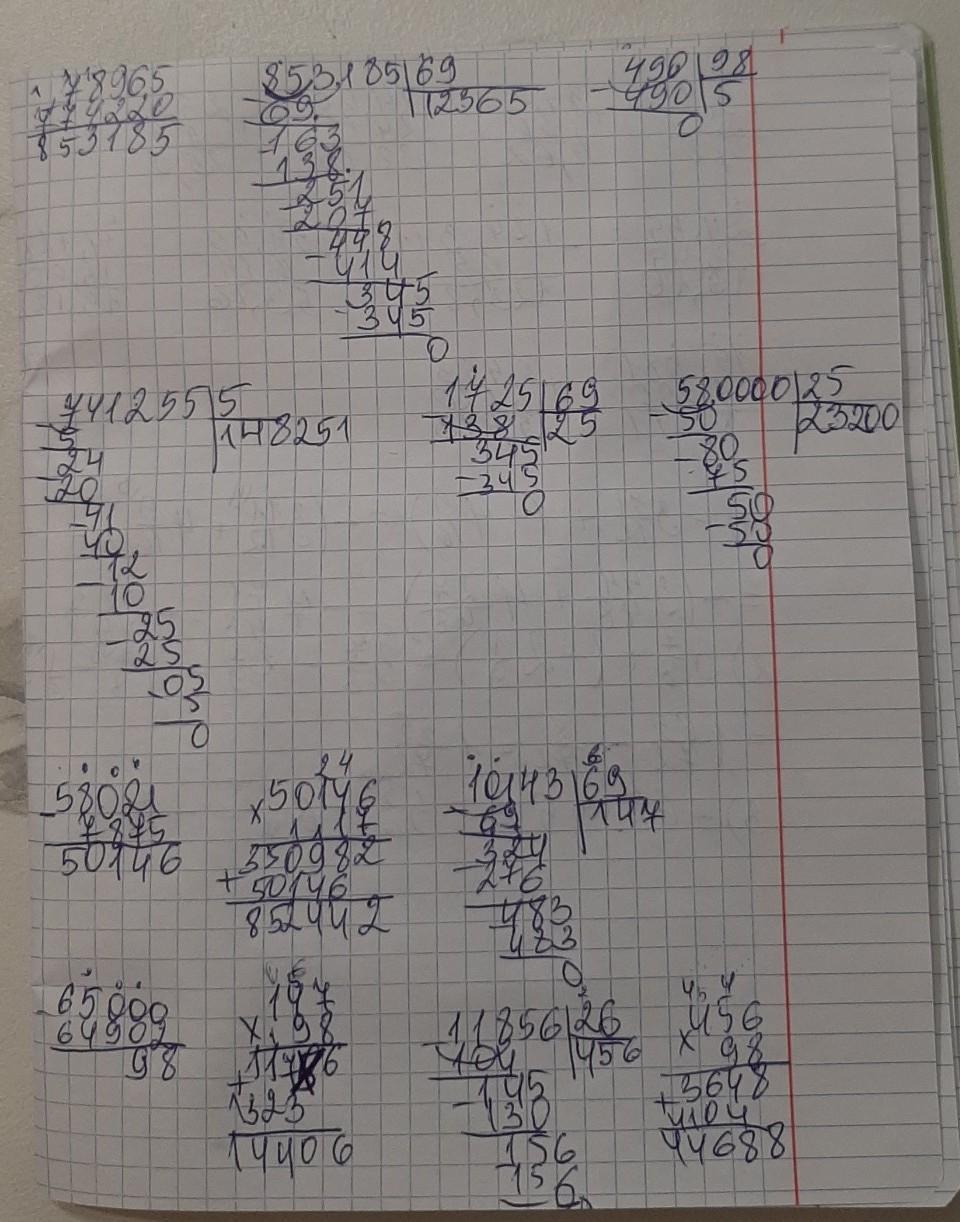 78965
774220
853185
853185 69
69 12365
163
138
251
207
448
414
345
345
0
490 98
- 490 5
0
741255 5
5 148251
24
20
- 41
40
- 12
10
- 25
25
05
5
0
1725 69
138 25
345
- 345
0
580000 25
- 50 23200
- 80
75
50
- 50
0
58021
- 7875
50146
24
× 50146
17
350982
+ 50146
852442
10143 69
- 69 147
324
- 276
483
483
0
65000
64902
98
147
× 98
1176
+ 1323
14406
11856 26
- 104 456
- 145
130
156
156
0
456
× 98
+ 3648
4104
44688